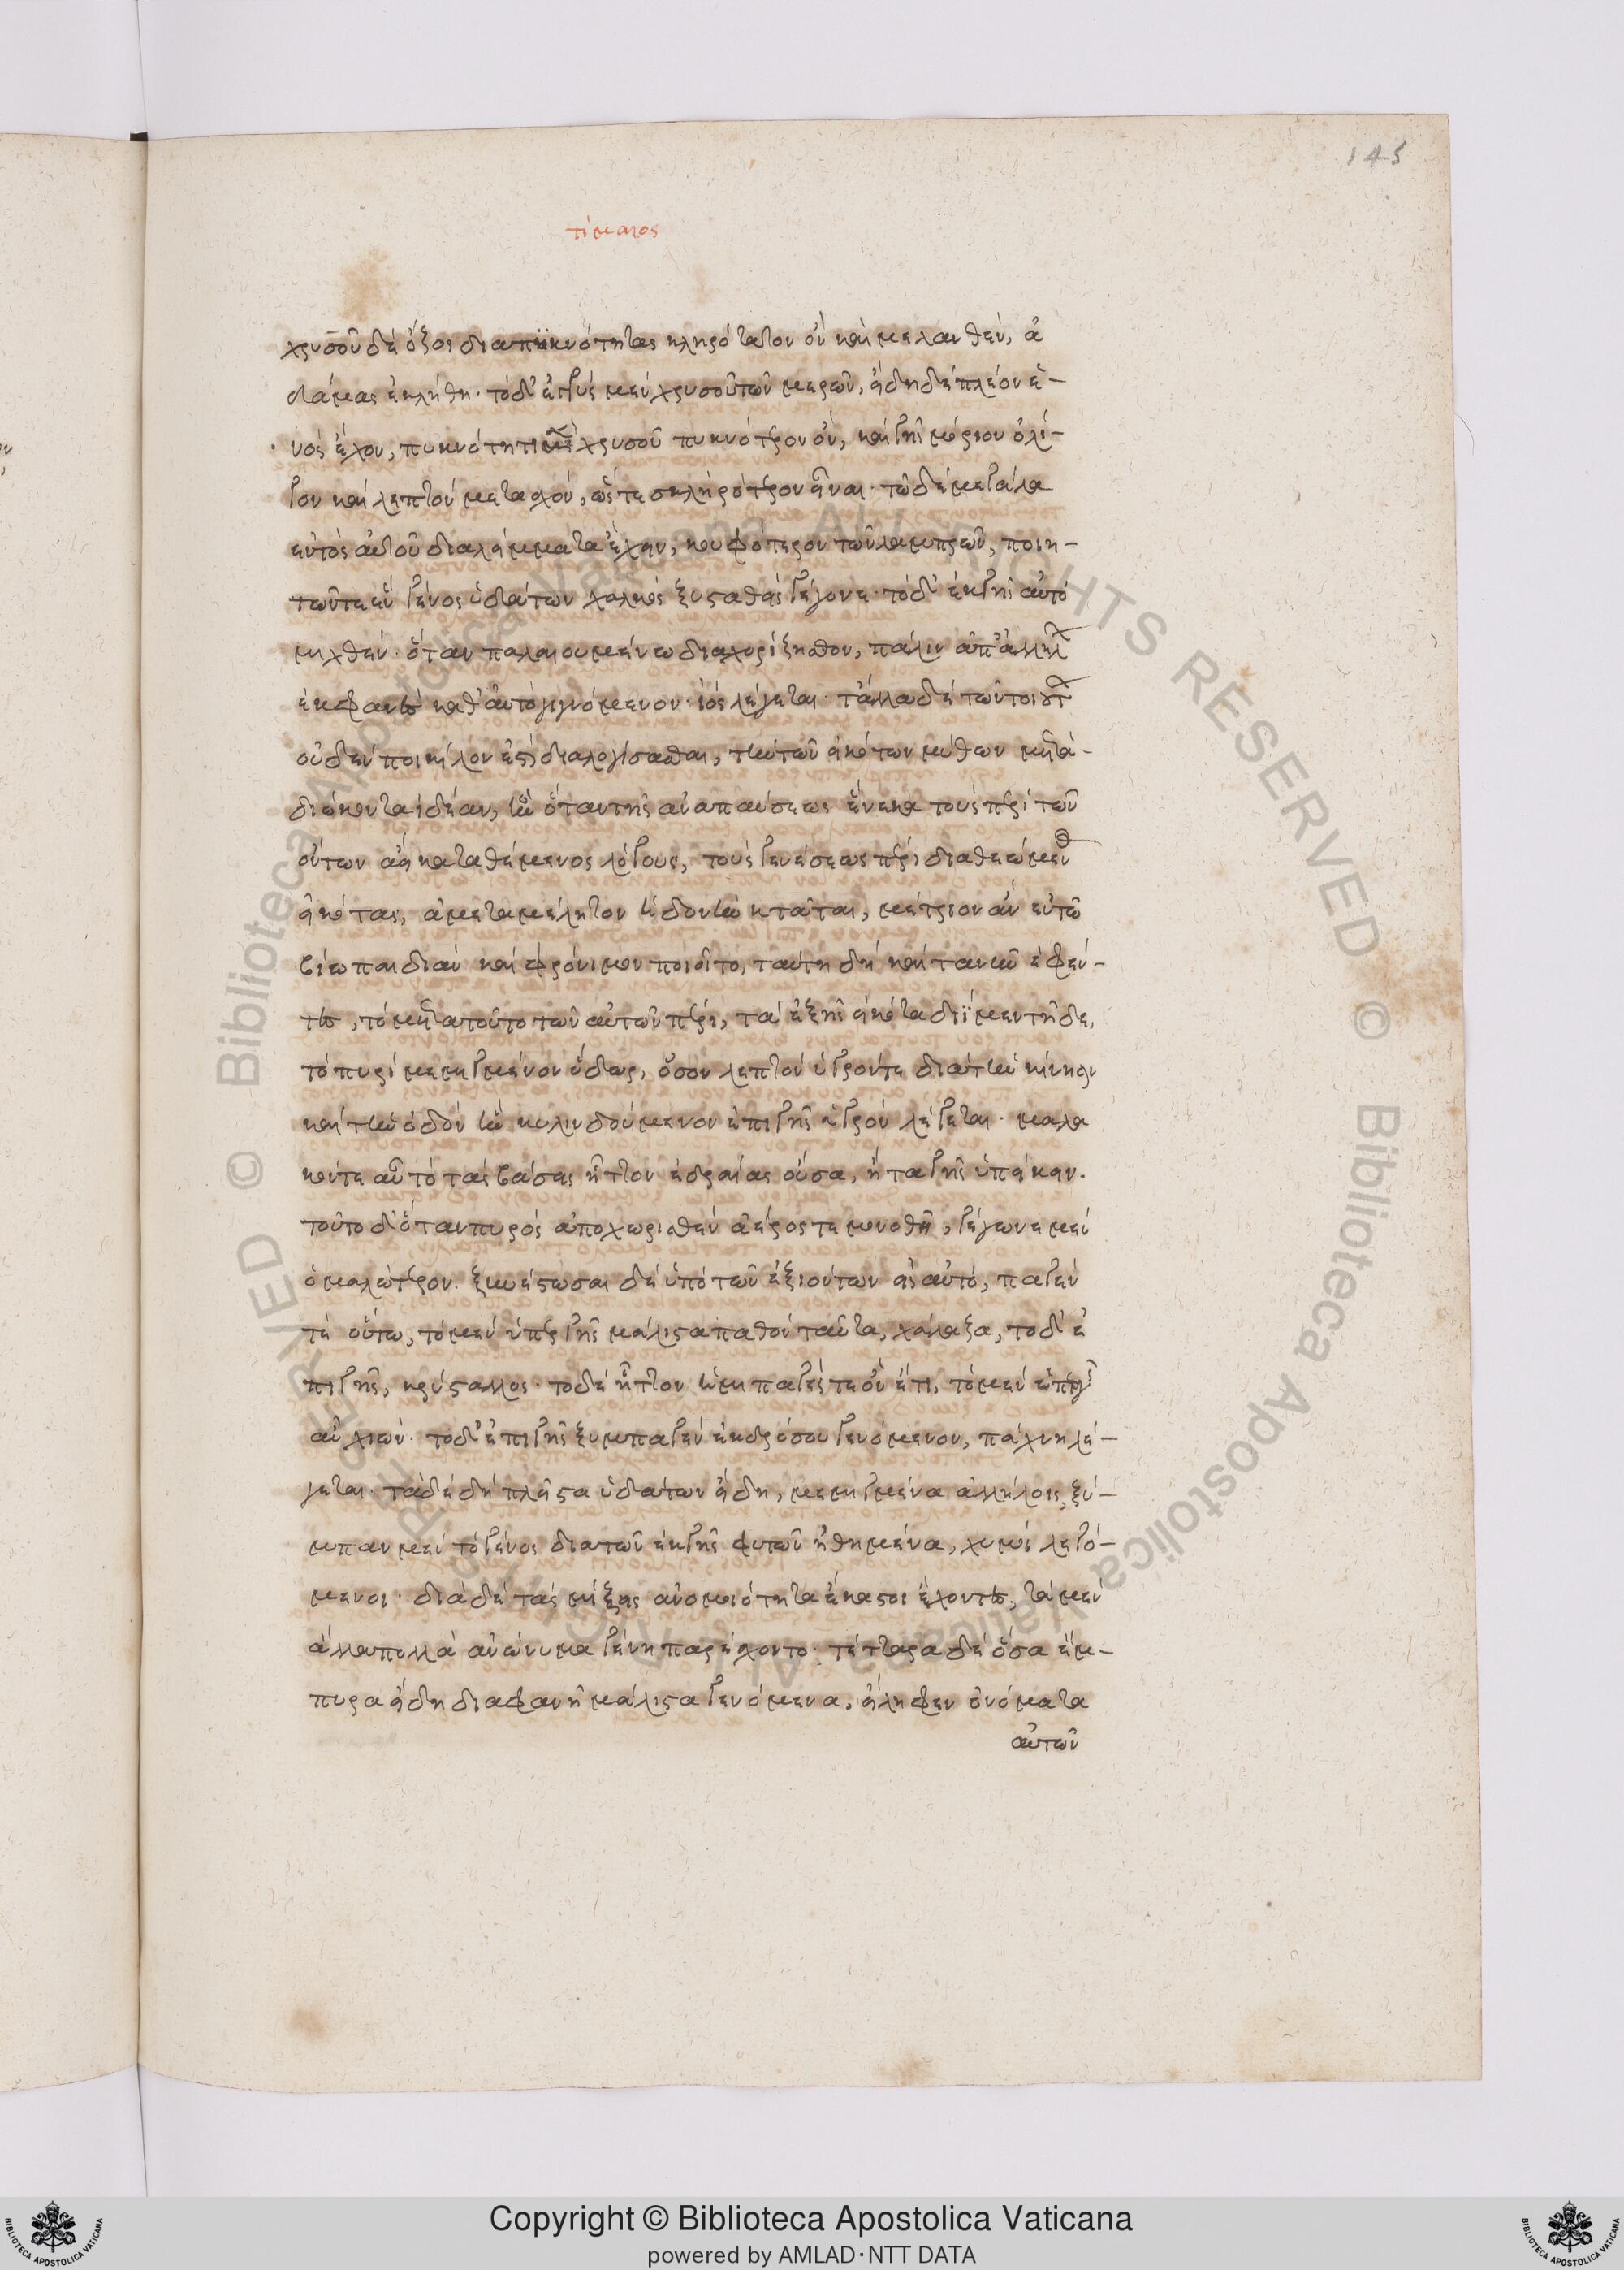 145
τίμαιος
χρυσοῦ δὲ ὄζος διὰ πυκνότητας κληρότατον ὂν καὶ μελανθὲν, ἀ
δάμας ἐκλήθη· τὸ δ' ἐγγὺς μὲν χρυσοῦ τῶν μερῶν, εἴδη δὲ πλέον ἑ-
νὸς ἔχον, πυκνότητι χρυσοῦ πυκνότερον ὂν, καὶ γῆς μόριον ὀλί-
γον καὶ λεπτὸν μεταχὸν, ὥστε σκληρότερον εἶναι· τῶ δὲ μεγάλα
ἐντὸς αὐτοῦ διαλήμματα ἔχειν, κουφότερον τῶν λαμπρῶν, ποιη-
τῶν τε ἓν γένος ὑδάτων χαλκὸς ξυσταθεὶς γέγονε· τὸ δ' ἐκ γῆς αὐτὸ
μιχθὲν· ὅταν παλαιουμένω διαχωρίζησθον, πάλιν ἀπ' ἀλλήλ
ἐκφανὲς καθ' αὑτὸ γιγνόμενον· ἰὸς λέγεται· τἄλλα δὲ τῶν τοιούτ
οὐδὲν ποικίλον ἔτι διαλογίσασθαι, τὴν τῶν εἰκότων μύθων μετα-
διώκοντα ἰδέαν, ἣν ὅταν τις ἀναπαύσεως ἕνεκα τοὺς περὶ τῶν
ὄντων ἀεὶ καταθέμενος λόγους, τοὺς γενέσεως περὶ διαθεώμεν
εἰκότας, ἀμεταμέλητον ἡδονὴν κτᾶται, μέτριον ἂν ἐν τῶ
βίω παιδιὰν καὶ φρόνιμον ποιοῖτο, ταύτη δὴ καὶ τανῦν ἐφέν-
τες, τὸ μετὰ τοῦτο τῶν αὐτῶν πέρι, τὰ ἑξῆς εἰκότα δίϊμεν τῆδε,
τὸ πυρὶ μεμιγμένον ὕδωρ, ὅσον λεπτὸν ὑγρόν τε διὰ τὴν κίνησιν
καὶ τὴν ὁδὸν ἣν κυλινδούμενον ἐπὶ γῆς ὑγρὸν λέγεται· μαλα
κόν τε αὖ τὸ τὰς βάσεις ἧττον ἑδραίας οὔσα, ἢ τὰ γῆς ὑπείκειν.
τοῦτο δ' ὅταν πυρὸς ἀποχωρισθὲν ἀέρος τε μονωθῆ, γέγονε μὲν
ὁμαλώτερον. ξυνέστωσαι δὲ ὑπὸ τῶν ἐξιόντων εἰς αὐτό, παγέν
τε οὕτω, τὸ μὲν ὑπὲρ γῆς μάλιστα παθὸν ταῦτα, χάλαζα, τὸ δ' ἐ
πὶ γῆς, κρύσταλλος· τὸ δὲ ἧττον ἡμιπαγές τε ὂν ἔτι, τὸ μὲν ὑπὲρ γῆς
αὖ χιών· τὸ δ' ἐπὶ γῆς ξυμπαγὲν ἐκ δρόσου γενόμενον, πάχνη λέ-
γεται· τὰ δὲ δὴ πλεῖστα ὑδάτων εἴδη, μεμιγμένα ἀλλήλοις, ξύ-
μπαν μὲν τὸ γένος διὰ τῶν ἐκ γῆς φυτῶν ἠθημένα, χυμοὶ λεγό-
μενοι· διὰ δὲ τὰς μίξεις ἀνομοιότητα ἕκαστοι ἔχοντες, τὰ μὲν
ἄλλα πολλὰ ἀνώνυμα γένη παρέχοντο· τέτταρα δὲ ὅσα ἔμ-
πυρα εἴδη διαφανῆ μάλιστα γενόμενα, εἴληφεν ὀνόματα
αὐτῶν
Copyright © Biblioteca Apostolica Vaticana
powered by AMLAD·NTT DATA